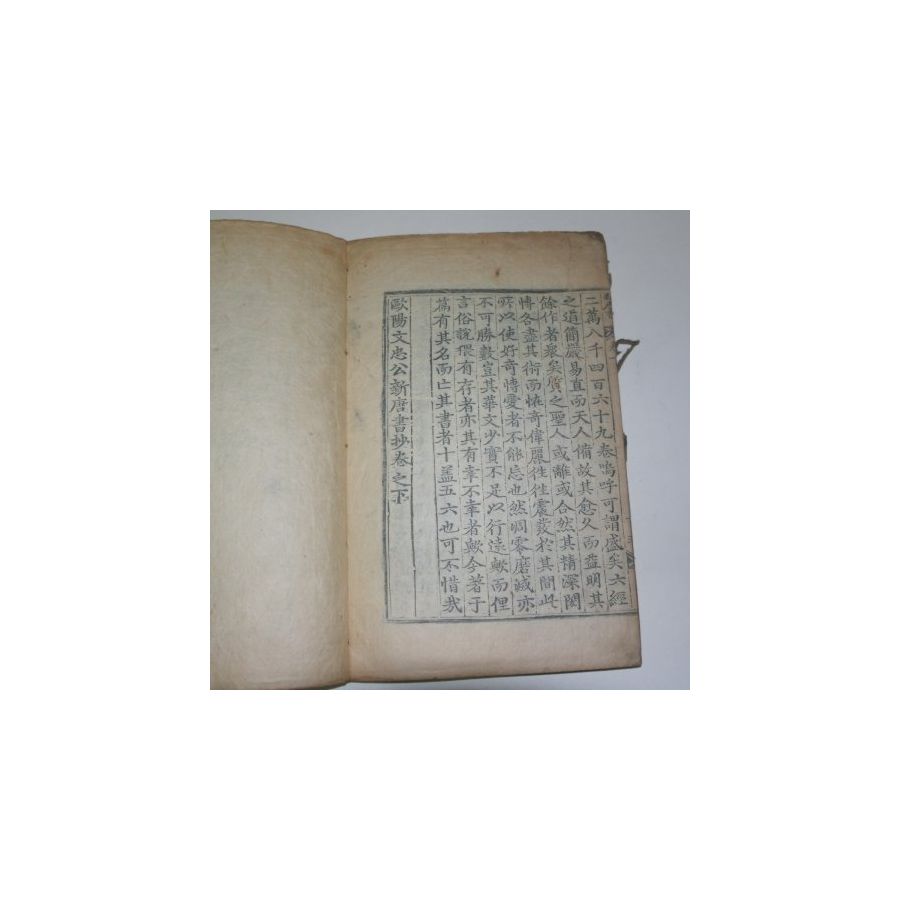 二萬八千四百六十九卷嗚呼可謂盛矣六經
之道簡嚴易直而天人備故其愈久而益明其
餘作者衆矣質之聖人或離或合然其精深閎
愽各盡其術而恠奇偉麗往往震發於其間此
所以使好奇愽愛者不能忘也然凋零磨滅亦
不可勝數豈其華文少實不足以行遠歟而俚
言俗說猥有存者亦其有幸不幸者歟今著于
篇有其名而亡其書者十盖五六也可不惜哉
歐陽文忠公新唐書抄卷之下